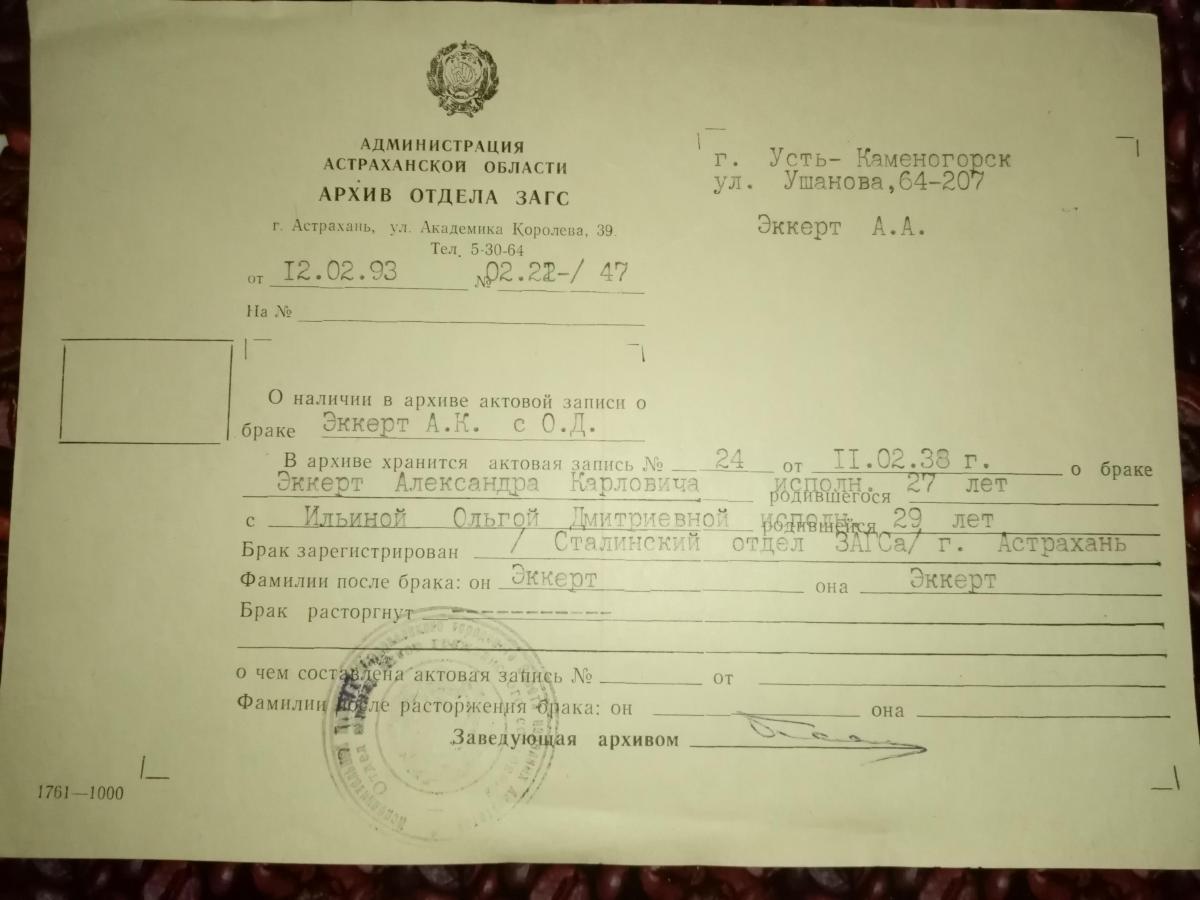 АДМИНИСТРАЦИЯ
АСТРАХАНСКОЙ ОБЛАСТИ
АРХИВ ОТДЕЛА ЗАГС
г. Астрахань, ул. Академика Королева, 39.
Тел. 5-30-64
от 12.02.93 № 02.22-/ 47
На №
г. Усть- Каменогорск
ул. Ушанова,64-207
Эккерт А.А.
О наличии в архиве актовой записи о
браке Эккерт А.К. с О.Д.
В архиве хранится актовая запись № 24 от II.02.38 г. о браке
Эккерт Александра Карловича родившегося исполн. 27 лет
с Ильиной Ольгой Дмитриевной родившейся исполн. 29 лет
Брак зарегистрирован / Сталинский отдел ЗАГСа/ г. Астрахань
Фамилии после брака: он Эккерт она Эккерт
Брак расторгнут -----------
о чем составлена актовая запись № от
Фамилии после расторжения брака: он она
Заведующая архивом
1761—1000